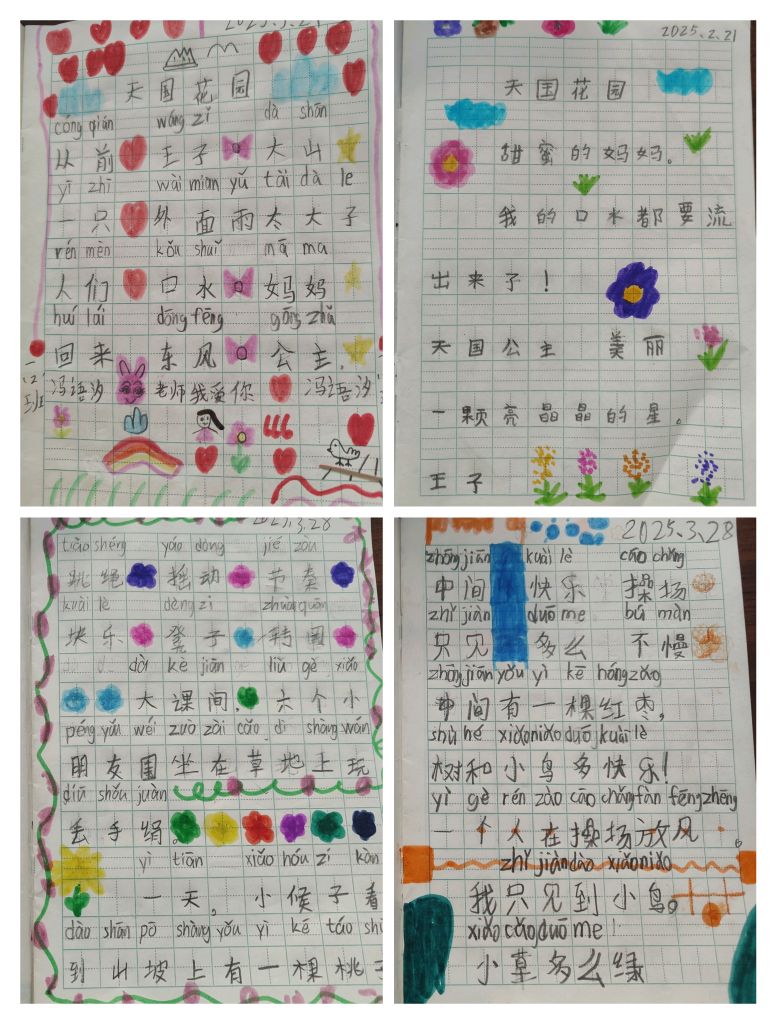 天国花园
cóng qián wáng zǐ dà shān
从前 王子 大山
yī zhī wài mian yǔ tài dà le
一只 外面雨太大了
rén mèn kǒu shuǐ mā ma
人们 口水 妈妈
huí lái dōng fēng gōng zhǔ
回来 东风 公主.
冯语汐 老师我爱你 冯语汐
一(2)班
2025.2.21
天国花园
甜蜜的妈妈。
我的口水都要流
出来了!
天国公主 美丽
一颗亮晶晶的星。
王子
2025.3.28
tiào shéng yáo dòng jié zòu
跳绳 摇动 节奏
kuài lè dèng zi zhuàn quān
快乐 凳子 转圈
dà kè jiān liù gè xiǎo
大课间,六个小
péng yǒu wéi zuò zài cǎo dì shàng wán
朋友围坐在草地上玩
diū shǒu juàn
丢手绢。
yì tiān xiǎo hóu zi kàn
一天,小候子看
dào shān pō shàng yǒu yì kē táo shù
到山坡上有一棵桃
2025.3.28
zhōng jiān kuài lè cāo chǎng
中间 快乐 操场
zhǐ jiàn duō me bú màn
只见 多么 不慢
zhōng jiān yǒu yì kē hóng zǎo
中间有一棵红枣,
shù hé xiǎo niǎo duō kuài lè
树和小鸟多快乐!
yì gè rén zài cāo chǎng fàn fēng zhēng
一个人在操场放风。
zhǐ jiàn dào xiǎo niǎo
我只见到小鸟。
xiǎo cǎo duō me
小草多么绿